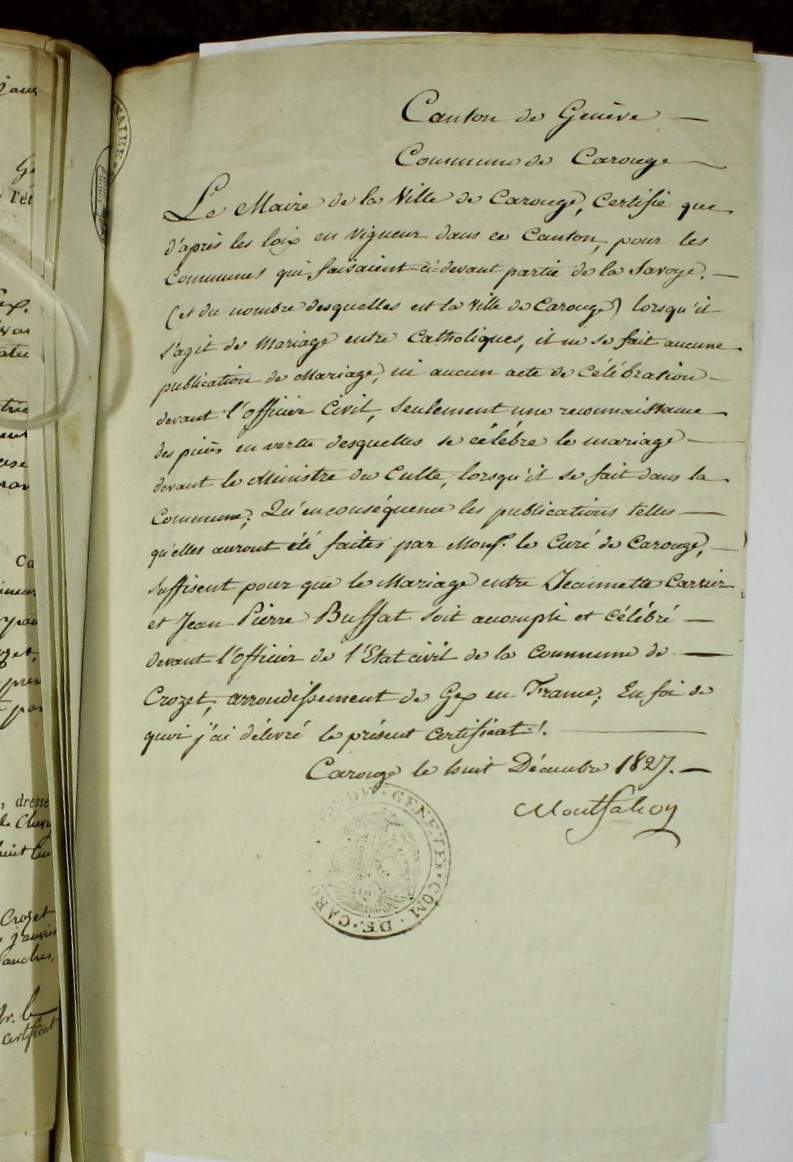 Canton de Genève —
Commune de Carouge —
Le Maire de la Ville de Carouge, Certifie que
d'après les loix en vigueur dans ce Canton, pour les
Communes qui faisaient ci-devant partie de la Savoye. —
(et du nombre desquelles est la Ville de Carouge) lorsqu'il
s'agit de Mariage entre Catholiques, il ne se fait aucune
publication de Mariage, ni aucun acte de Célébration —
devant l'officier Civil, seulement une reconnaissance
des pièces en vertu desquelles se célébre le mariage —
devant le Ministre du Culte, lorsqu'il se fait dans la
Commune; Qu'en conséquence les publications telles —
qu'elles auront été faites par Monsr. le Curé de Carouge, —
suffisent pour que le Mariage entre Jeannette Carrier
et Jean Pierre Buffat soit accompli et célébré —
devant l'officier de l'Etat civil de la Commune de —
Crozet, arrondissement de Gex en France; En foi de
quoi j'ai délivré le présent certificat. —
Carouge le huit Décembre 1827. —
Montfalcon
GENEVE · COM · DE · CARO
NAIRE
l'ét
Gex.
Ca
, dressé
Crozet
certificat